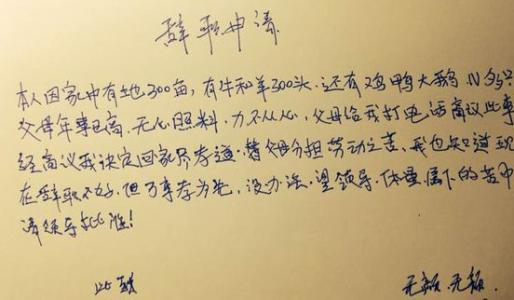 辞职申请
本人因家中有土地300亩,有牛和羊300头,还有鸡鸭大鹅
父母年事已高,无心照料,力不从心,父母给我打电话商议此事
经商议我决定回家尽孝道,替父母分担劳动之苦,我也知道现
在辞职不好,但百善孝为先,没办法,望领导,体量属下的苦中
请领导批准!
此致